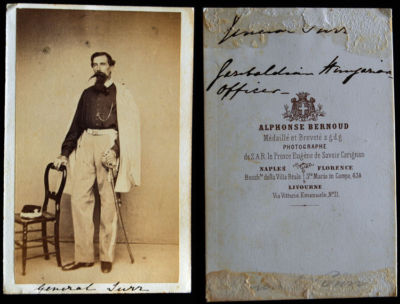 General Turr
General Turr
Garibaldian Hungarian
Officer
ALPHONSE BERNOUD
Médaillé et Breveté s.g.d.g.
PHOTOGRAPHE
de S.A.R. le Prince Eugène de Savoie Carignan
NAPLES FLORENCE
della Villa Reale Via Maria in Campo, 434
LIVOURNE
Via Vittorio Emanuele, N° 21.